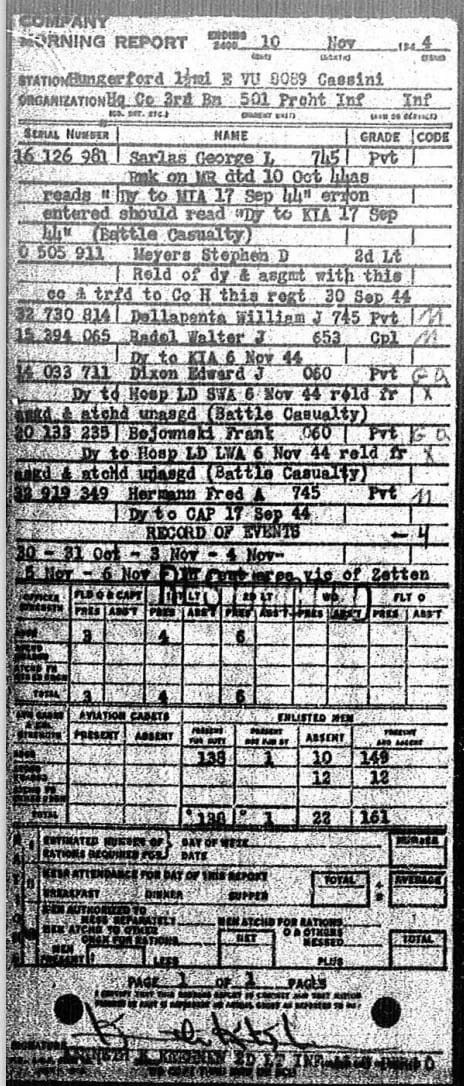 COMPANY
MORNING REPORT ENDING 2400 10 Nov 194 4
STATION Hungerford 1½mi E VU 8089 Cassini
ORGANIZATION Hq Co 3rd Bn 501 Prcht Inf Inf
SERIAL NUMBER NAME GRADE CODE
16 126 981 Sarlas George L 745 Pvt
Rmk on MR dtd 10 Oct 44as
reads "Dy to MIA 17 Sep 44" erron
entered should read "Dy to KIA 17 Sep
44" (Battle Casualty)
0 505 911 Meyers Stephen D 2d Lt
Reld of dy & asgmt with this
co & trfd to Co H this regt 30 Sep 44
32 730 814 Dellapenta William J 745 Pvt
15 394 065 Radel Walter J 653 Cpl
Dy to KIA 6 Nov 44
14 033 711 Dixon Edward J 060 Pvt
Dy to Hosp LD SWA 6 Nov 44 reld fr
asgd & atchd unasgd (Battle Casualty)
20 133 235 Bojowski Frank 060 Pvt
Dy to Hosp LD LWA 6 Nov 44 reld fr
asgd & atchd unasgd (Battle Casualty)
32 919 349 Hermann Fred A 745 Pvt
Dy to CAP 17 Sep 44
RECORD OF EVENTS
30 - 31 Oct - 3 Nov - 4 Nov-
5 Nov - 6 Nov vic of Zetten
OFFICER STRENGTH FLD O & CAPT 1ST LT 2D LT WO FLT O
PRES ABS'T PRES ABS'T PRES ABS'T PRES ABS'T PRES ABS'T
ASGD 3 4 6
TOTAL 3 4 6
AVIATION CADETS ENLISTED MEN
PRESENT ABSENT PRESENT FOR DUTY PRESENT NOT FOR DY ABSENT PRESENT AND ABSENT
ASGD 138 1 10 149
12 12
TOTAL 138 1 22 161
ESTIMATED NUMBER OF RATIONS REQUIRED FOR DAY OF WEEK DATE NUMBER
MESS ATTENDANCE FOR DAY OF THIS REPORT TOTAL AVERAGE
BREAKFAST DINNER SUPPER
MEN AUTHORIZED TO MESS SEPARATELY MEN ATCHD FOR RATIONS
MEN ATCHD TO OTHER ORGN FOR RATIONS NET O & OTHERS MESSED TOTAL
MEN PRESENT LESS PLUS
PAGE 1 OF 1 PAGES
SIGNATURE
2D LT INF